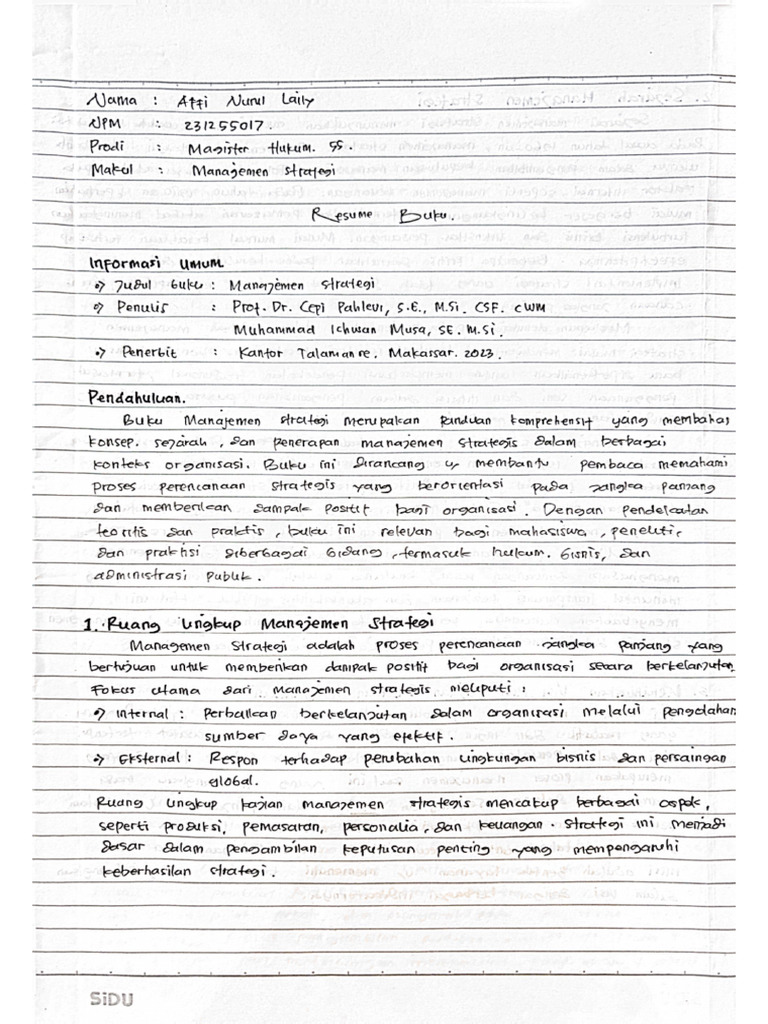 Nama : Affi Nurul Laily
NPM : 231255017.
Prodi : Magister Hukum. 55.
Makul : Manajemen strategi
Resume Buku.
Informasi Umum
Judul buku : Manajemen strategi
Penulis : Prof. Dr. Cepi Pahlevi, S.E., M.Si. CSF. CWM
Muhammad Ichwan Musa, SE. M.Si.
Penerbit : Kantor Talamanre. Makassar. 2023.
Pendahuluan.
Buku Manajemen strategi merupakan panduan komprehensif yang membahas
konsep. sejarah, dan penerapan manajemen strategis dalam berbagai
konteks organisasi. Buku ini dirancang u/ membantu pembaca memahami
proses perencanaan strategis yang berorientasi pada jangka panjang
dan memberikan dampak positif bagi organisasi. Dengan pendekatan
teoritis dan praktis, buku ini relevan bagi mahasiswa, peneliti,
dan praktisi diberbagai bidang, termasuk hukum. bisnis, dan
administrasi publik.
1. Ruang Ungkup Manajemen Strategi
Managemen Strategi adalah proses perencanaan jangka panjang yang
bertujuan untuk memberikan dampak positif bagi organisasi secara berkelanjutan.
Fokus utama dari manajemen strategis, meliputi :
Internal : Perbaikan berkelanjutan dalam organisasi melalui pengolahan
sumber daya yang efektif.
Eksternal : Respon terhadap perubahan lingkungan bisnis dan persaingan
global.
Ruang lingkup kajian manajemen strategis mencakup berbagai aspek,
seperti produksi, pemasaran, personalia, dan keuangan. Strategi ini menjadi
dasar dalam pengambilan keputusan penting yang mempengaruhi
keberhasilan strategi.
SiDU